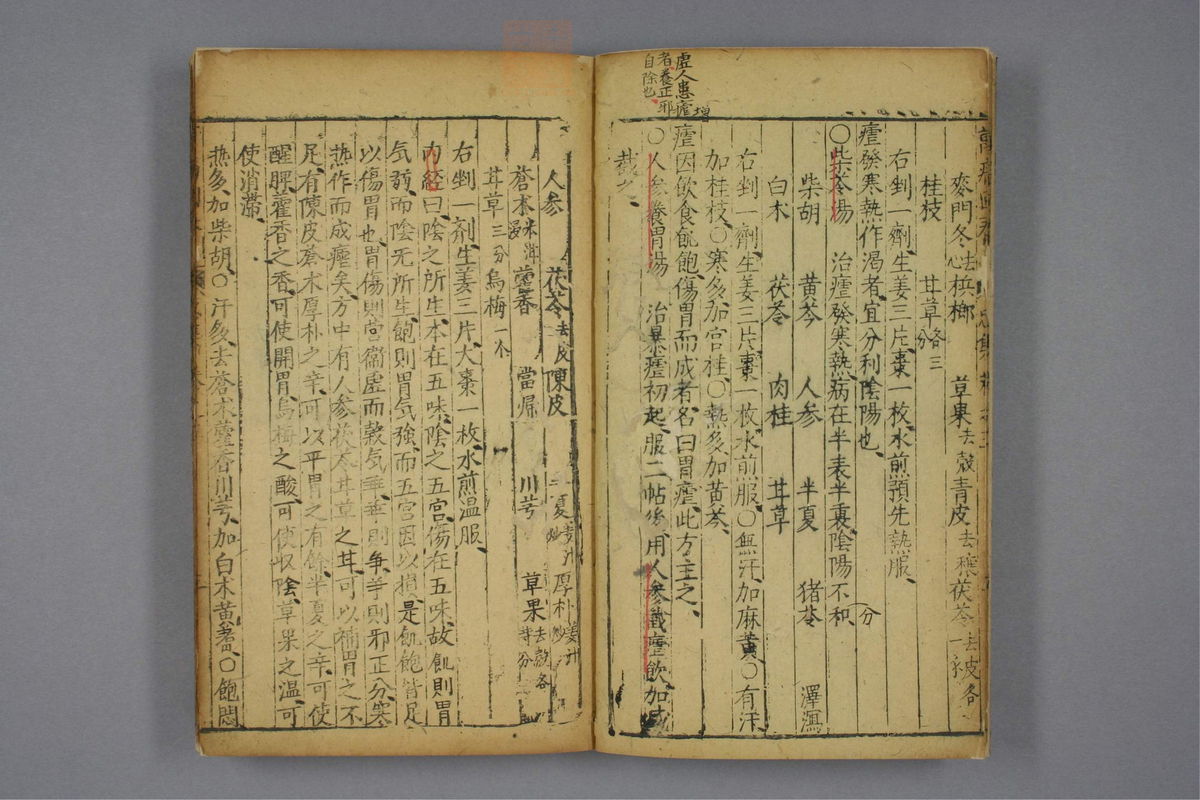 虛人患瘧
者養正邪
自除也
增
麥門冬去心 梹榔 草果去殼 青皮去穰 茯苓去皮各一錢
桂枝 甘草各三分
右剉一劑生姜三片棗一枚水煎預先熱服
瘧發寒熱作渴者宜分利陰陽也
○柴苓湯 治瘧發寒熱病在半表半裏陰陽不和 分
柴胡 黃芩 人参 半夏 猪苓 澤瀉
白朮 茯苓 肉桂 甘草
右剉一劑生姜三片棗一枚水煎服○無汗加麻黃○有汗
加桂枝○寒多加官桂○熱多加黃芩
瘧因飲食飢飽傷胃而成者名曰胃瘧此方主之
○人参養胃湯 治暴瘧初起服二帖後用人参截瘧飲加減
截之
人参 茯苓去皮 陳皮 半夏姜汁炒 厚朴姜汁炒
蒼朮米泔浸 藿香 當歸 川芎 草果去殼各等分
甘草三分 烏梅一个
右剉一剤生姜三片大棗一枚水煎温服
内經曰陰之所生本在五味陰之五宮傷在五味故飢則胃
気弱而陰无所生飽則胃気強而五宮因以損是飢飽皆足
以傷胃也胃傷則営衛虚而榖気乖乖則争争則邪正分寒
热作而成瘧矣方中有人参茯苓甘草之甘可以補胃之不
足有陳皮蒼朮厚朴之辛可以平胃之有餘半夏之辛可使
醒脾藿香之香可使開胃烏梅之酸可使收陰草果之温可
使消滞
热多加柴胡○汗多去蒼朮藿香川芎加白朮黃蓍○飽悶